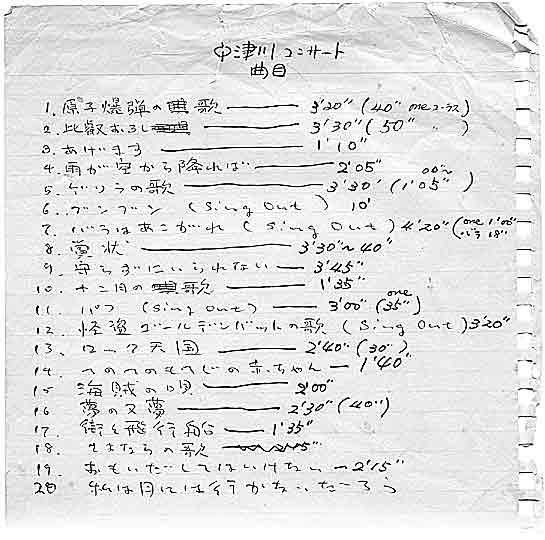 中津川コンサート
曲目
1. 原子爆弾の歌 —— 3'20" (40" oneコーラス)
2. 比叡おろし —— 3'30" (50" 〃 )
3. あげます —— 1'10"
4. 雨が空から降れば —— 2'05"
5. ゲリラの歌 —— 3'30" (1'05" 00"〜)
6. ブンブン (Sing Out) 10'
7. バラはあこがれ (Sing Out) 4'20" (one 1'00" バラ 18"
8. 賞状 —— 3'30"〜40"
9. 守らずにいられない —— 3'45"
10. 十二月の歌 —— 1'35"
11. パフ (Sing out) —— 3'00" (one 35")
12. 怪盗ゴールデンバットの歌 (Sing Out) 3'20"
13. ロック天国 —— 2'40" (30")
14. へのへのもへじの赤ちゃん — 1'40"
15 海賊の唄 2'00"
16 夢の又夢 —— 2'30" (40")
17. 街と飛行船 —— 1'35"
18. さよならの歌
19. おもいだしてはいけない — 2'15"
20 私は月には行かないだろう